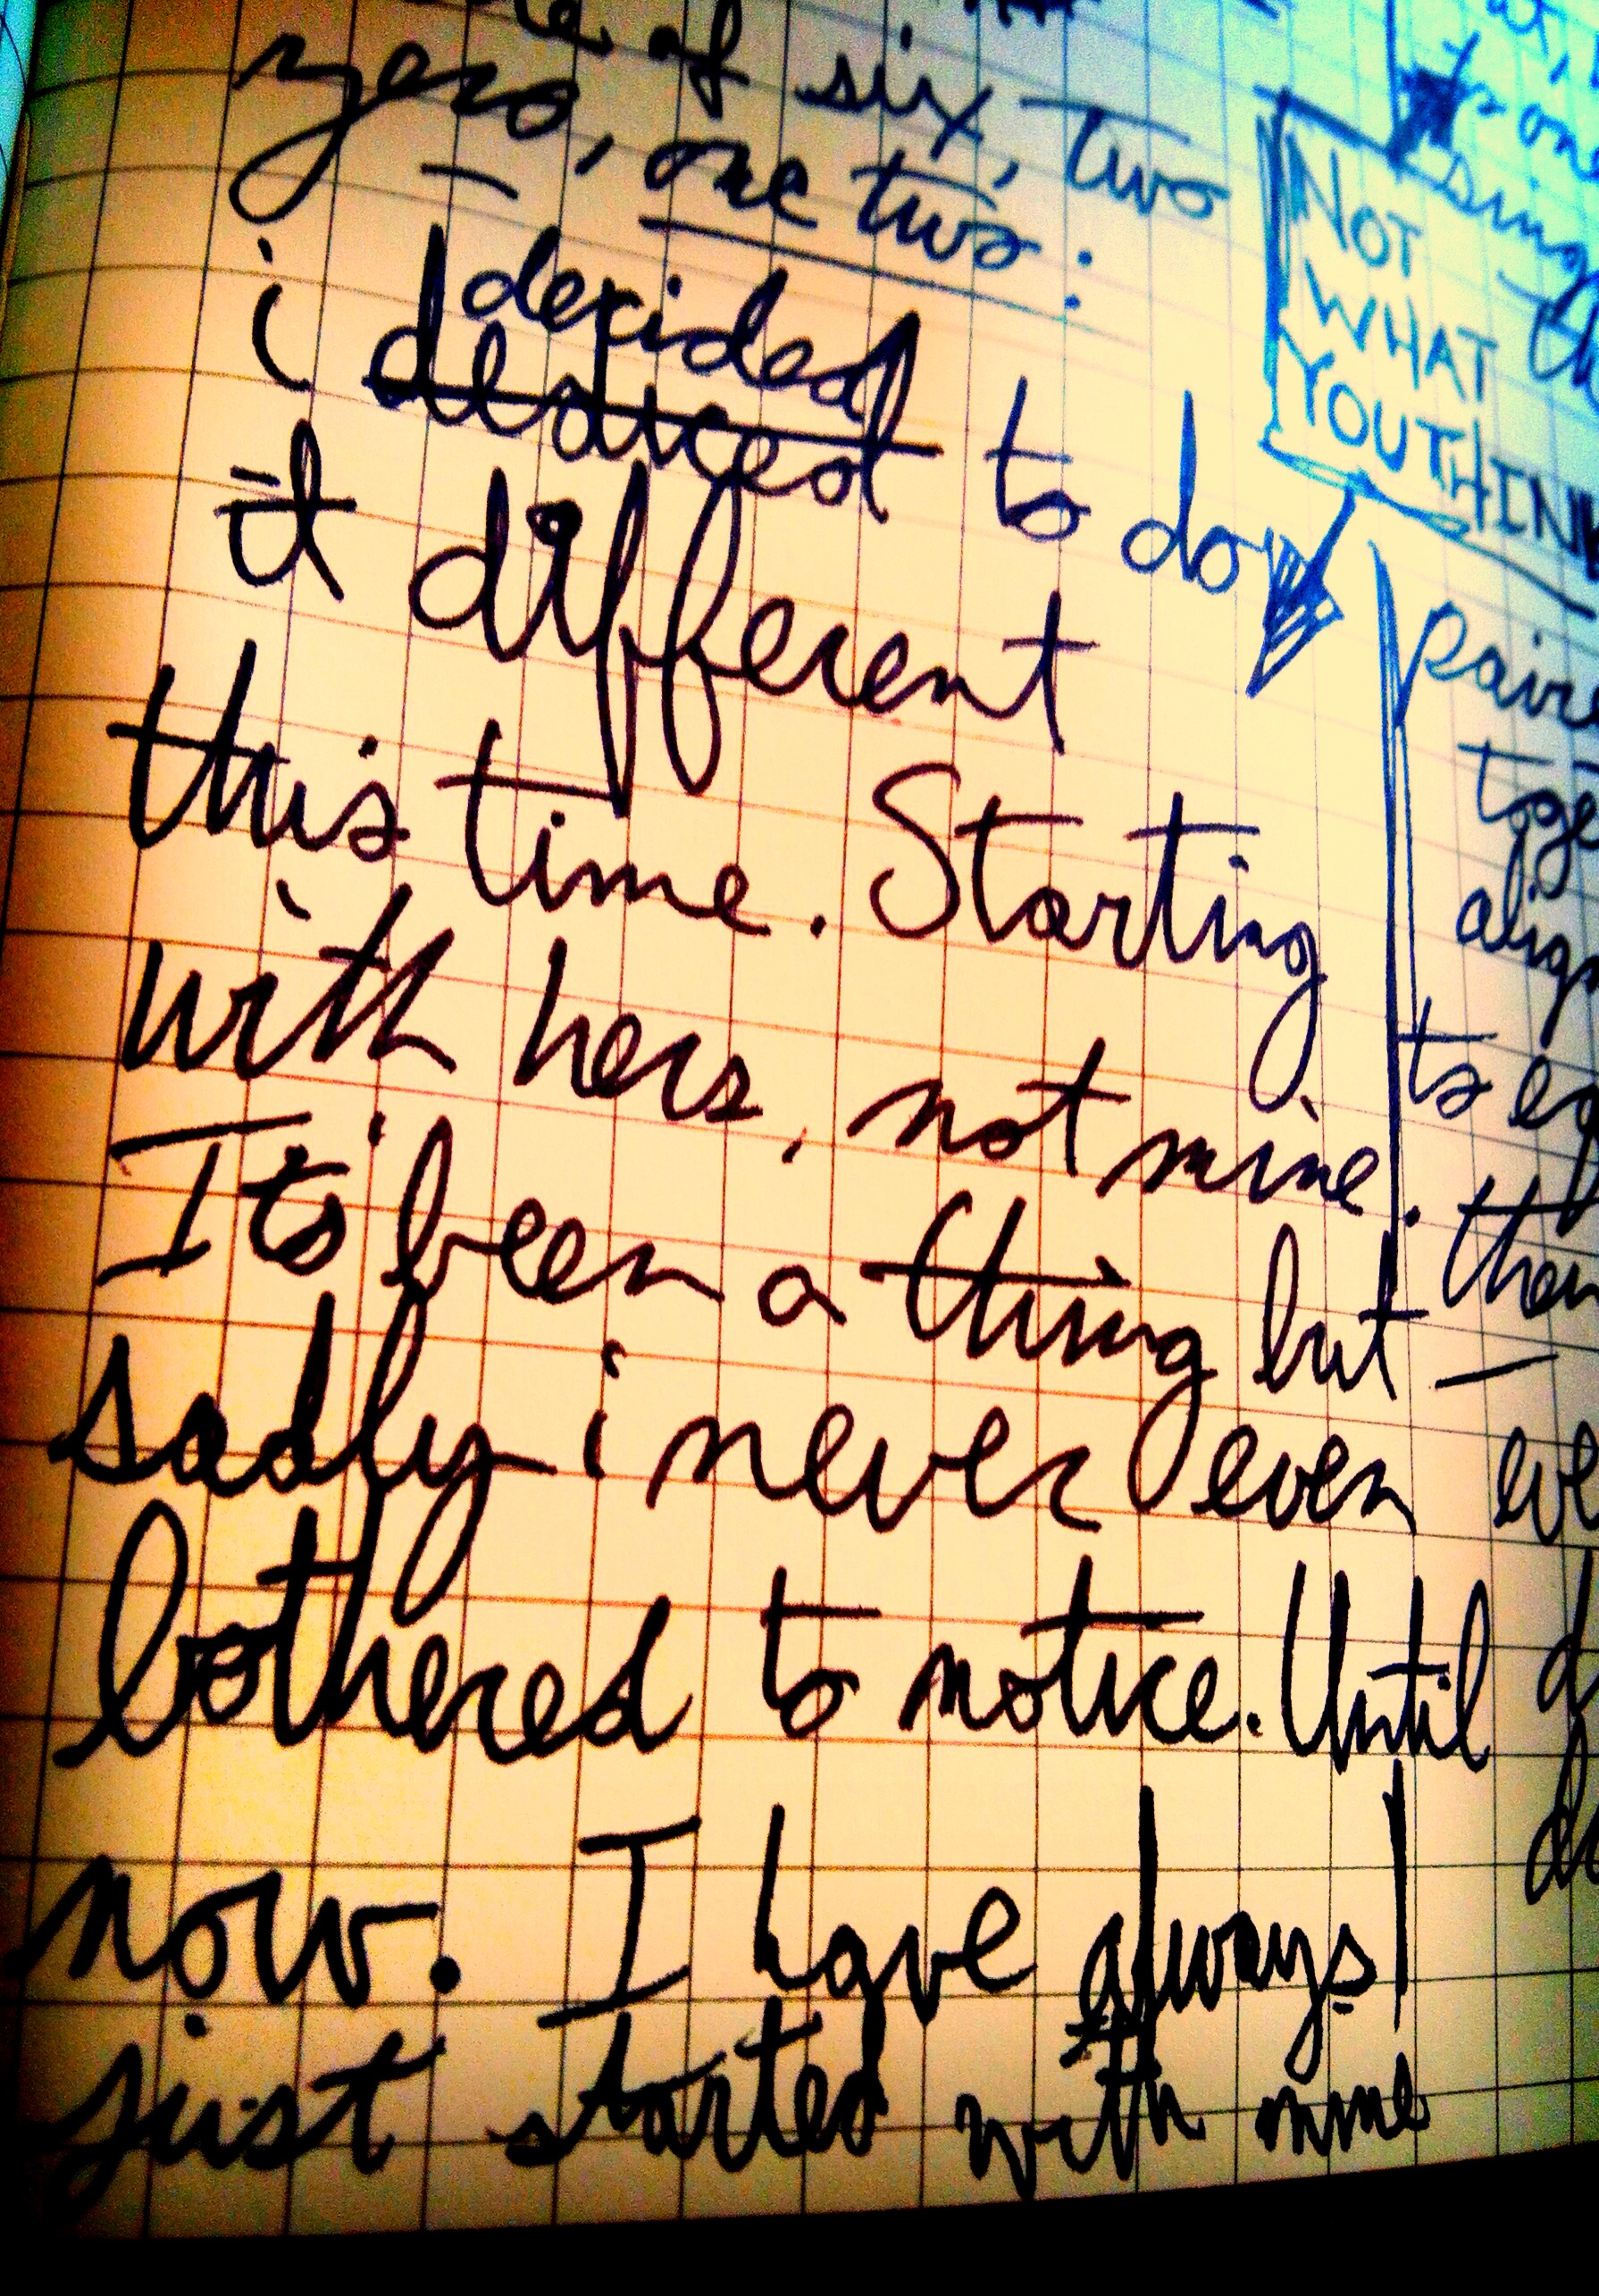 of six, two
zero, one two:
i decided to do
deduced
it different
this time. Starting
with hers, not mine.
It's been a thing but
sadly i never even
bothered to notice. Until
now. I have always
just started with mine
NOT
WHAT
YOU THINK